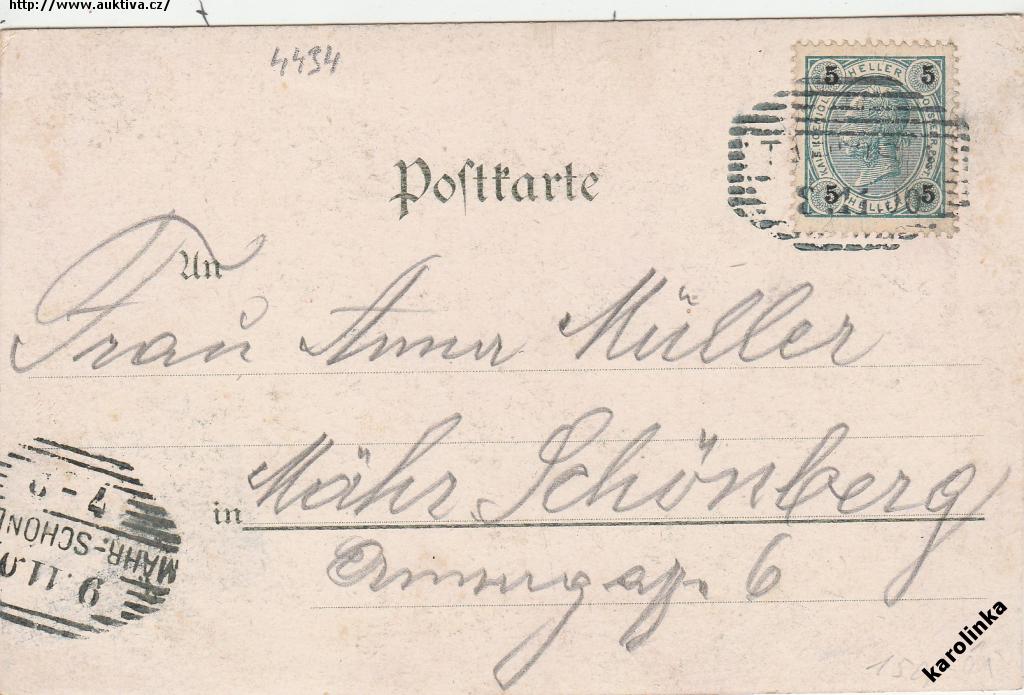 http://www.auktiva.cz/
4494
5 HELLER 5
5 HELLER 5
Postkarte
An
Frau Anna Müller
in Mähr. Schönberg
6
7-
MÄHR.-SCHÖNB
9.11.0
karolinka